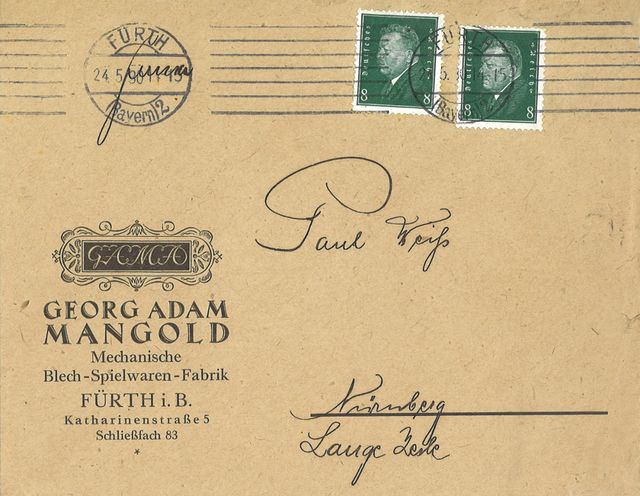 FÜRTH
24.5.30 11-15
(Bayern) 2
Deutsches Reich
8 8
FÜRTH
24.5.30 11-15
(Bayern) 2
Deutsches Reich
8 8
GAMA
GEORG ADAM
MANGOLD
Mechanische
Blech-Spielwaren-Fabrik
FÜRTH i. B.
Katharinenstraße 5
Schließfach 83
*
Paul Weiß
Nürnberg
Lange Zeile